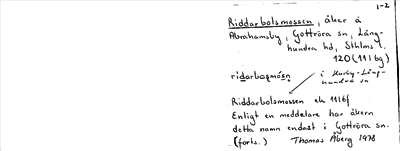 1-2
Riddarbolsmossen, åker å
Abrahamsby, Gottröra sn, Lång-
hundra hd, Sthlms l.
120 (11I6g)
riḍarboₔmósn̥ i Husby-Lång-
hundra sn
Riddarbolsmossen ek 11I6f
Enligt en meddelare har åkern
detta namn endast i Gottröra sn.
(forts.) Thomas Åberg 1978